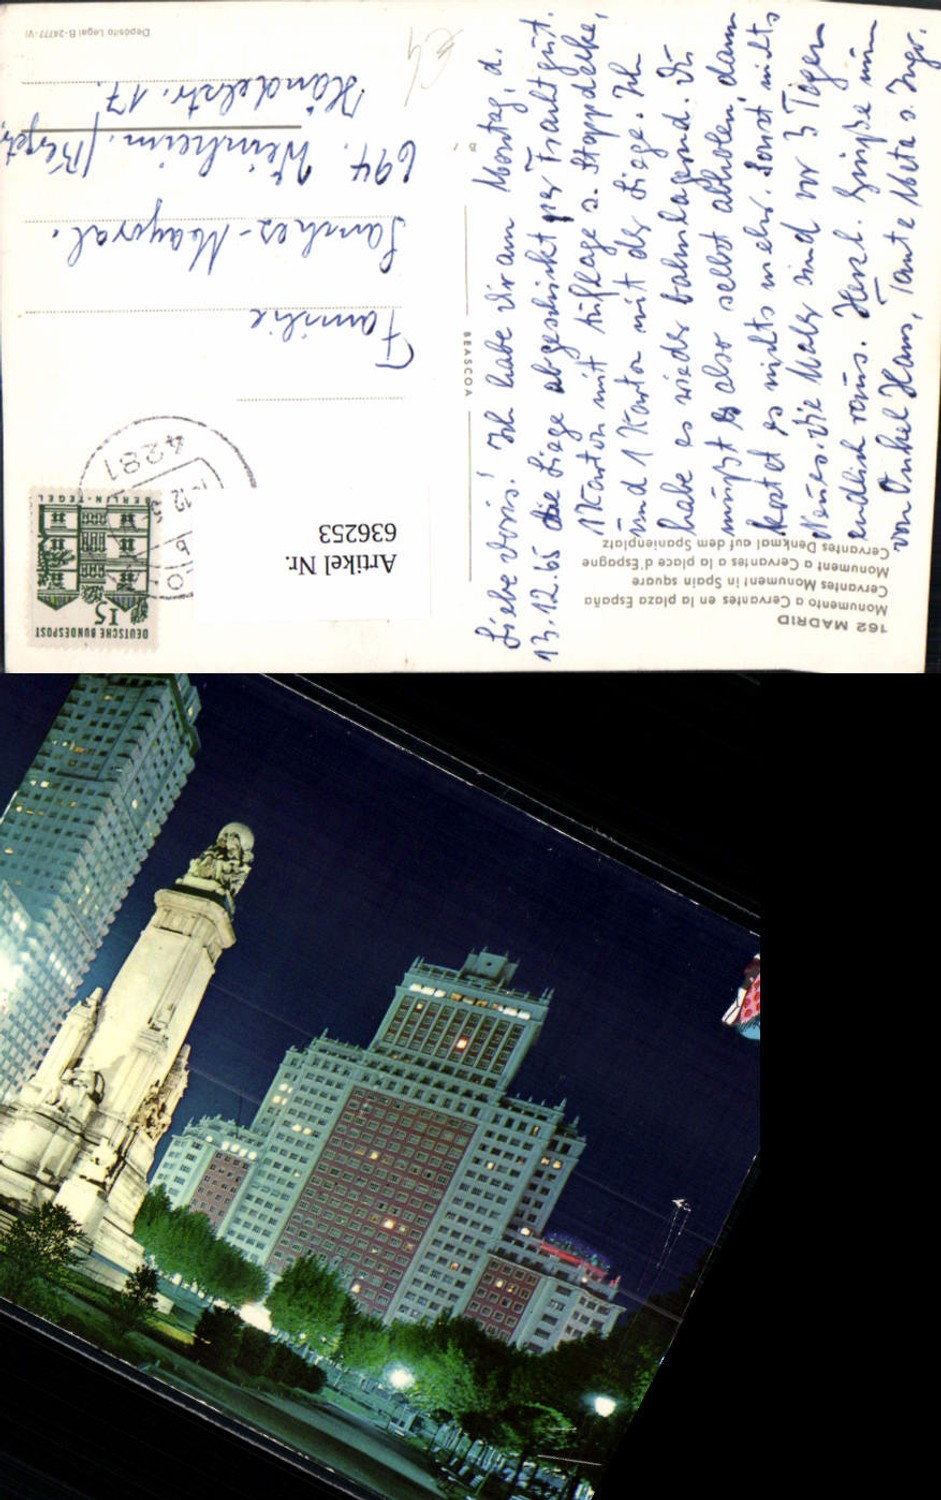 162 MADRID
Monumento a Cervantes en la plaza España
Cervantes Monument in Spain square
Monument a Cervantes a la place d'Espagne
Cervantes Denkmal auf dem Spanienplatz
Liebe Doris! Ich habe Dir am Montag, d.
13.12.65 die Liege abgeschickt per Frachtgut.
1 Karton mit Auflage u. Steppdecke,
und 1 Karton mit der Liege. Ich
habe es wieder bahnlagernd. Du
müßt es also selbst abholen dann
kostet es nichts mehr. Sonst nichts
Neues. Die Maler sind vor 3 Tagen
endlich raus. Herzl. Grüße nun
von Onkel Hans, Tante Meta u. Ingr.
BEASCOA
DEUTSCHE BUNDESPOST
15
BERLIN-TEGEL
4281
Artikel Nr.
636253
Familie
Sanches-Mayoral.
694. Weinheim. /Bergstr.
Händelstr. 17.
Depósito Legal B-24777-VI